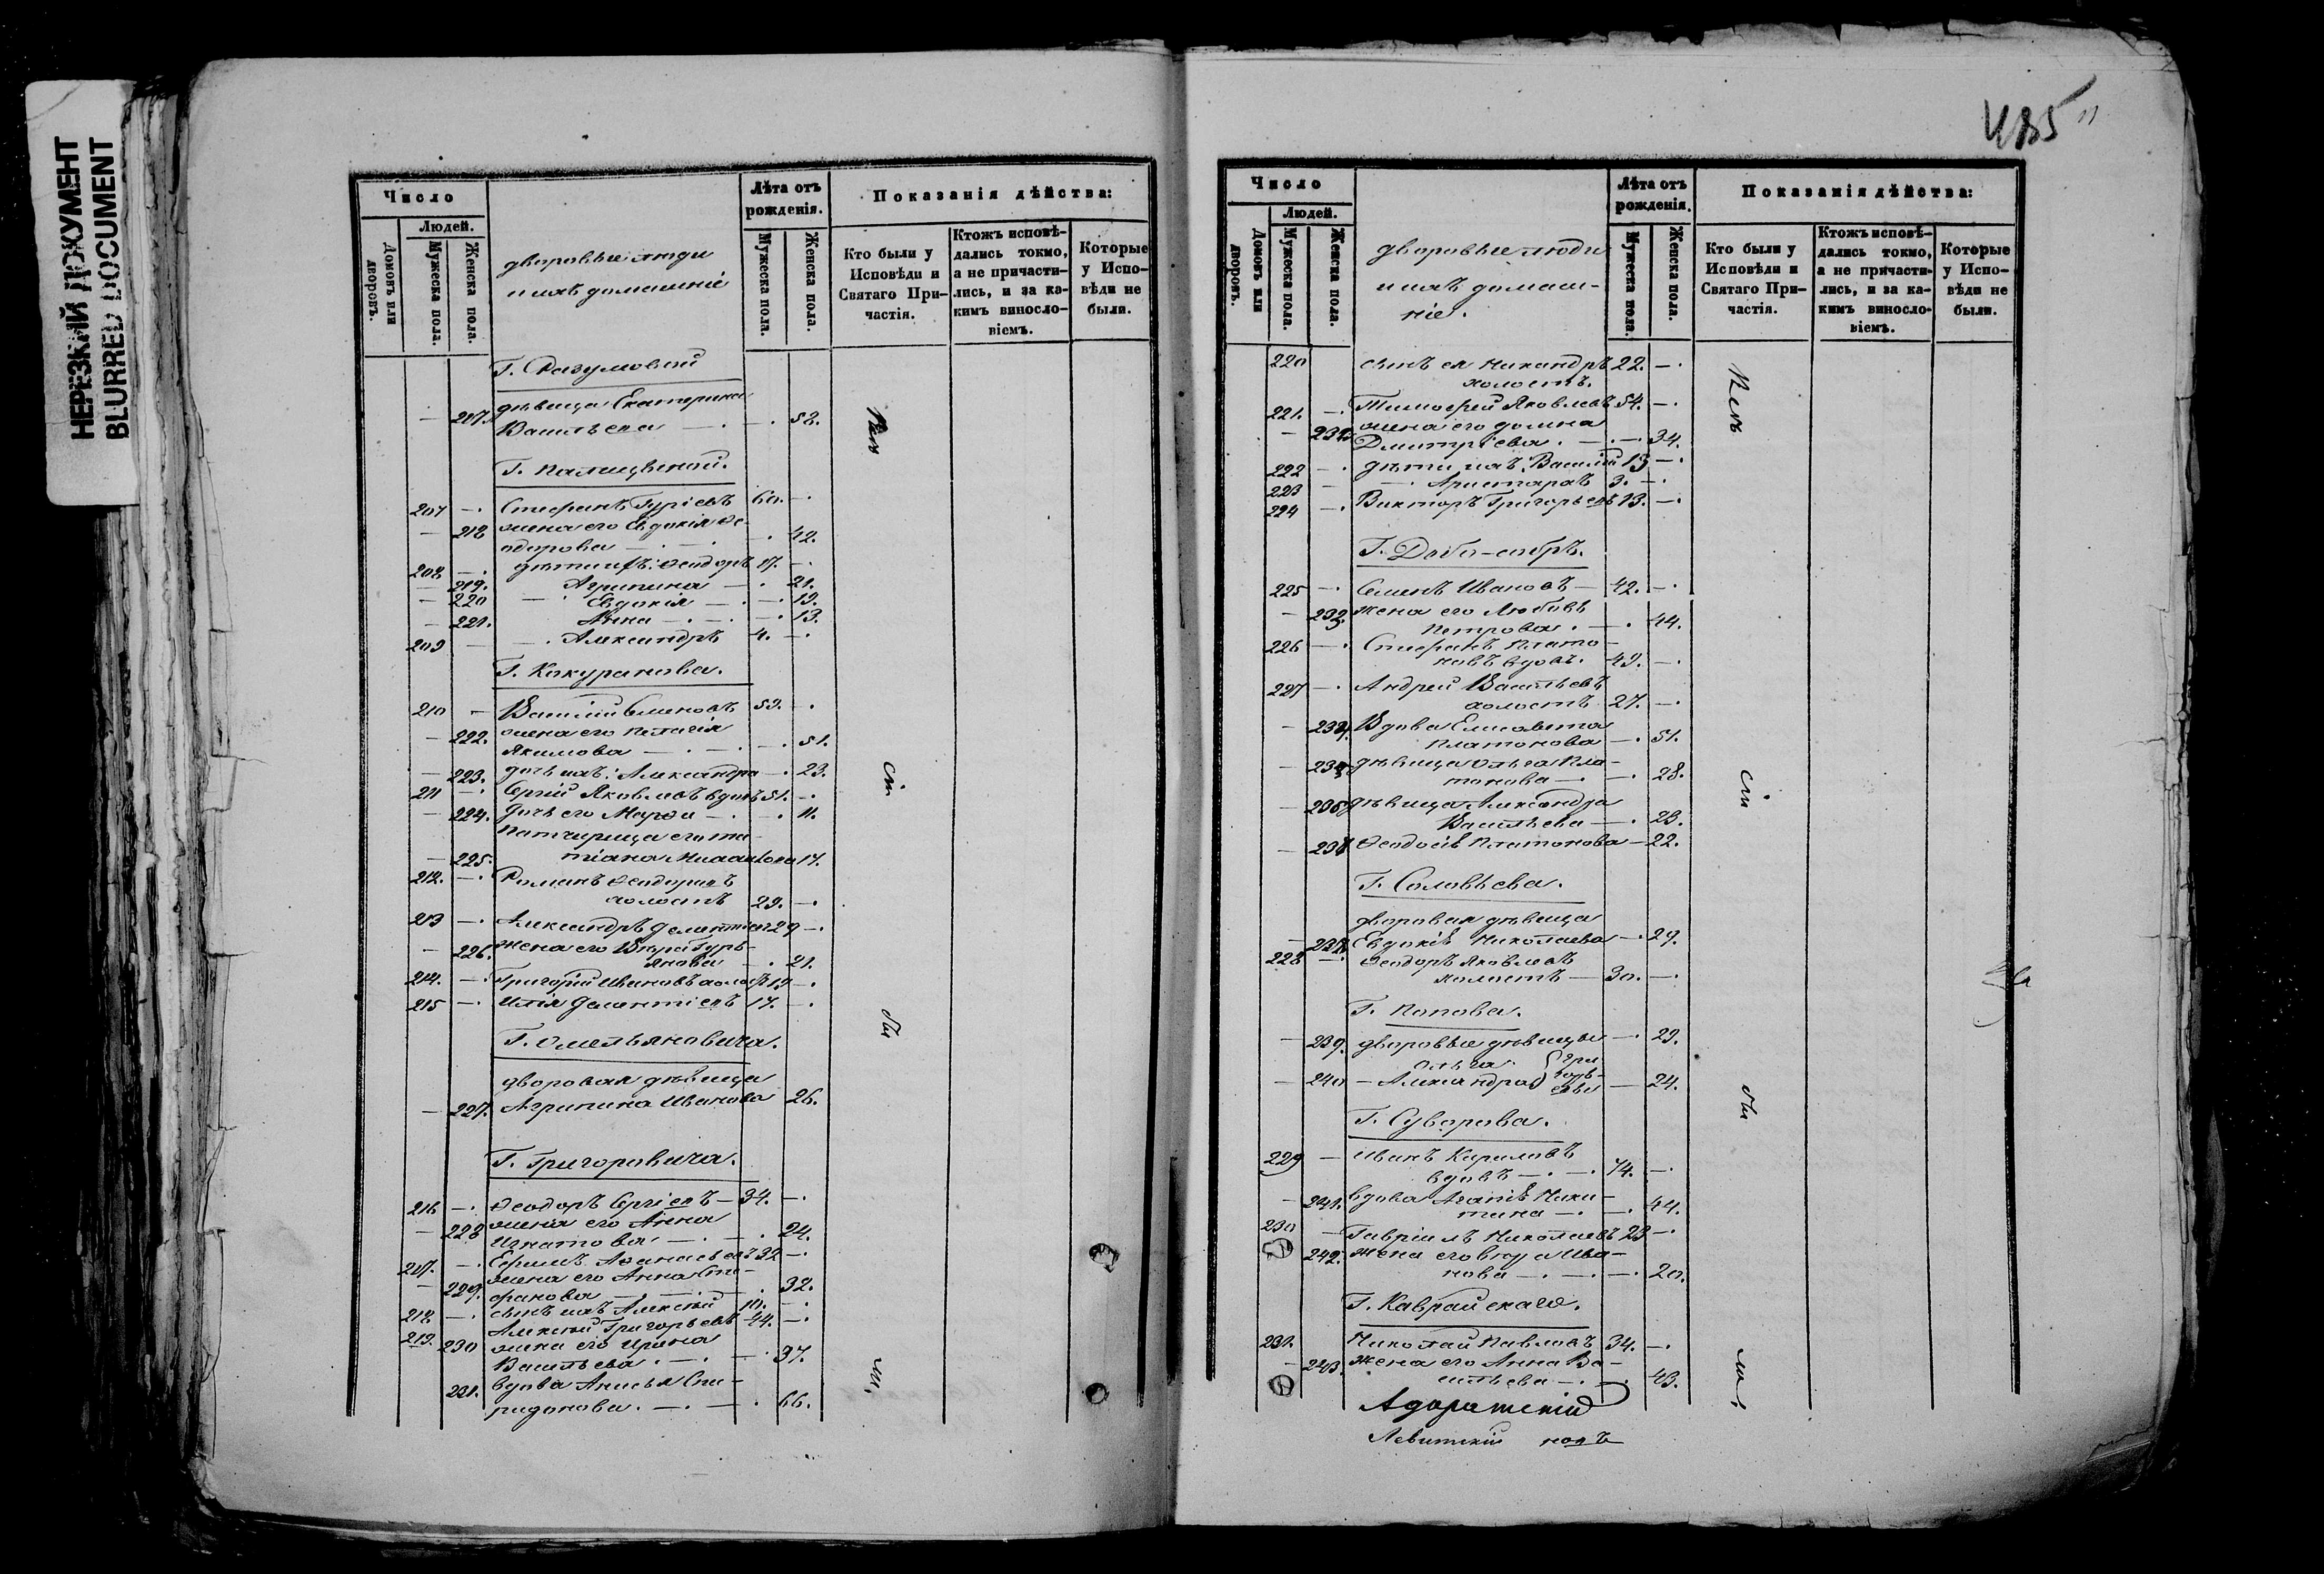 НЕРЕЗКИЙ ДОКУМЕНТ
BLURRED DOCUMENT
Число
Людей.
Домовъ или дворовъ.
Мужеска пола.
Женска пола.
дворовые люди
и ихъ домашніе
Лѣта отъ рожденія.
Мужеска пола.
Женска пола.
Показанія дѣйства:
Кто были у Исповѣди и Святаго Причастія.
Ктожъ исповѣдались токмо, а не причастились, и за какимъ винословіемъ.
Которые у Исповѣди не были.
Г. Разумовой
дѣвица Екатерина
217. Васильева — 58.
Г. Палицыной.
207 Стефанъ Гуріевъ 60.
218 жена его Евдокія Ѳе-
одорова — 42.
208 дѣти ихъ: Ѳеодоръ 17.
219. Агрипина — 21.
220 Евдокія — 19.
221. Анна — 13.
209 Александръ 4.
210 Василій Семеновъ 53.
222. жена его Пелагія
Якимова — 51.
223. дочь ихъ: Александра — 23.
211 Сергій Яковлевъ вдовъ 51.
224. дочь его Марѳа — 11.
225.
212. Романъ Ѳеодоровъ
холостъ 29.
213 Александръ 29
226. жена его Вѣра Гурь-
янова 21.
214. Григорій Ивановъ холостъ 19
215 Илія 17.
Г. Омельяновича.
дворовая дѣвица
227. Агрипина Иванова 26.
Г. Григоровича.
216 Ѳеодоръ Сергіевъ 34.
228 жена его Анна
Игнатова 24.
217. Ефимъ Аѳанасьевъ 32
229. жена его Анна Сте-
фанова — 32.
218 сынъ ихъ Алексѣй 10.
219. Алексѣй Григорьевъ 44.
230 жена его Ирина
Васильева — 37.
231. вдова Анисья Спи-
ридонова — 66.
485
Число
Людей.
Домовъ или дворовъ.
Мужеска пола.
Женска пола.
дворовые люди
и ихъ домаш-
ніе.
Лѣта отъ рожденія.
Мужеска пола.
Женска пола.
Показанія дѣйства:
Кто были у Исповѣди и Святаго Причастія.
Ктожъ исповѣдались токмо, а не причастились, и за какимъ винословіемъ.
Которые у Исповѣди не были.
220 сынъ ея Никандръ 22.
холостъ.
221. Тимоѳей Яковлевъ 54.
232. жена его Домна
Дмитріева — 34.
222 дѣти ихъ: Василій 13
223 Аристархъ 3.
224 Викторъ Григорьевъ 13.
225 Семенъ Ивановъ — 42.
233. жена его Любовь
Петрова — 44.
226 Стефанъ Плато-
новъ вдовъ. 49.
227 Андрей Васильевъ
холостъ 27.
234. Вдова Елисавета
Платонова — 51.
235. дѣвица Ольга Пла-
тонова — 28.
236. дѣвица Александра
Васильева — 23.
237. Ѳеодосія Платонова — 22.
Г. Соловьева.
дворовая дѣвица
238. Евдокія Николаева — 29.
228 Ѳеодоръ Яковлевъ
холостъ — 30.
Г. Попова.
239. дворовые дѣвицы — 23.
Ольга
240 — Александра Григорьевы — 24.
Г. Суворова.
229 Иванъ Кириловъ
вдовъ — 74.
241. вдова Агапія Ники-
тина — 44.
230 Гавріилъ Николаевъ 23
242. жена его Ива-
нова — 20.
Г. Каврайскаго.
231. Николай Павловъ 34.
243. жена его Анна Ва-
сильева — 43.